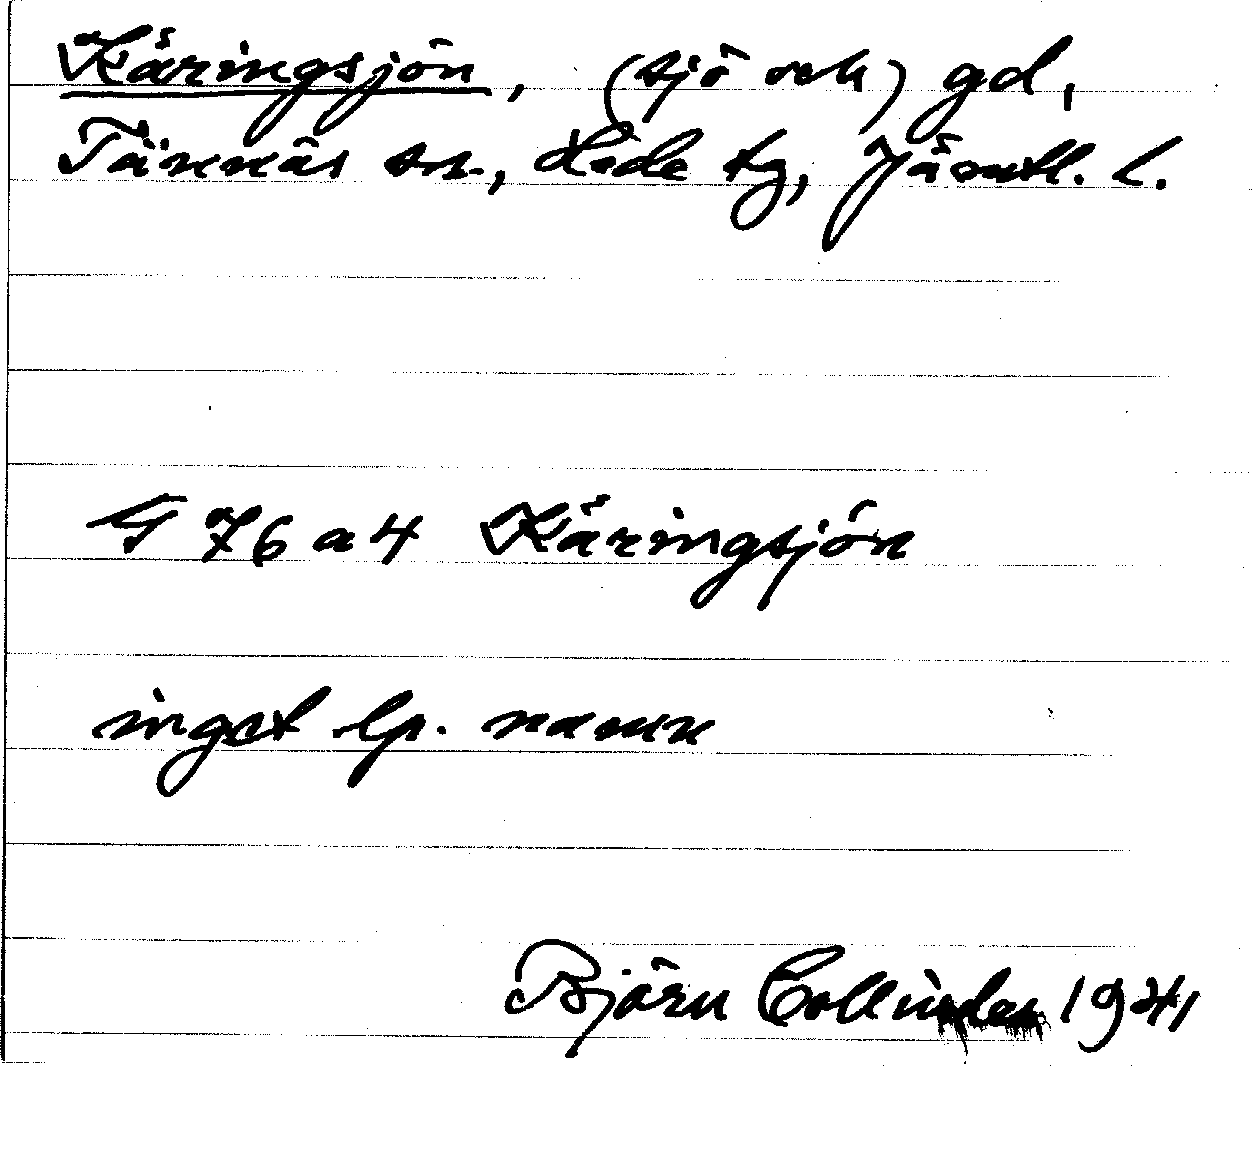 Käringsjön, (sjö och) gd,
Tännäs sn., Hede tg, Jämtl. l.
G 76 a 4 Käringsjön
inget lp. namn
Björn Collinder 1941